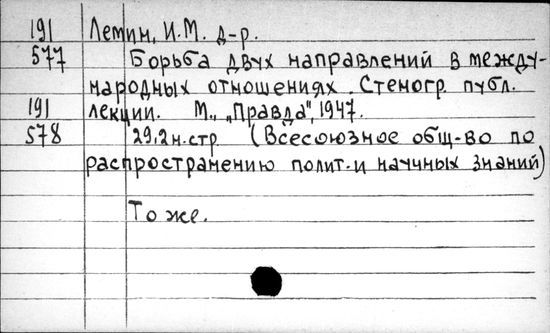 191 Лемин, И.М. д-р.
577 Борьба двух направлений в между-
народных отношениях. Стеногр. публ.
191 лекции. М., „Правда", 1947.
578 29,2н.стр (Всесоюзное общ-во по
распространению полит-и научных знаний)
То же.